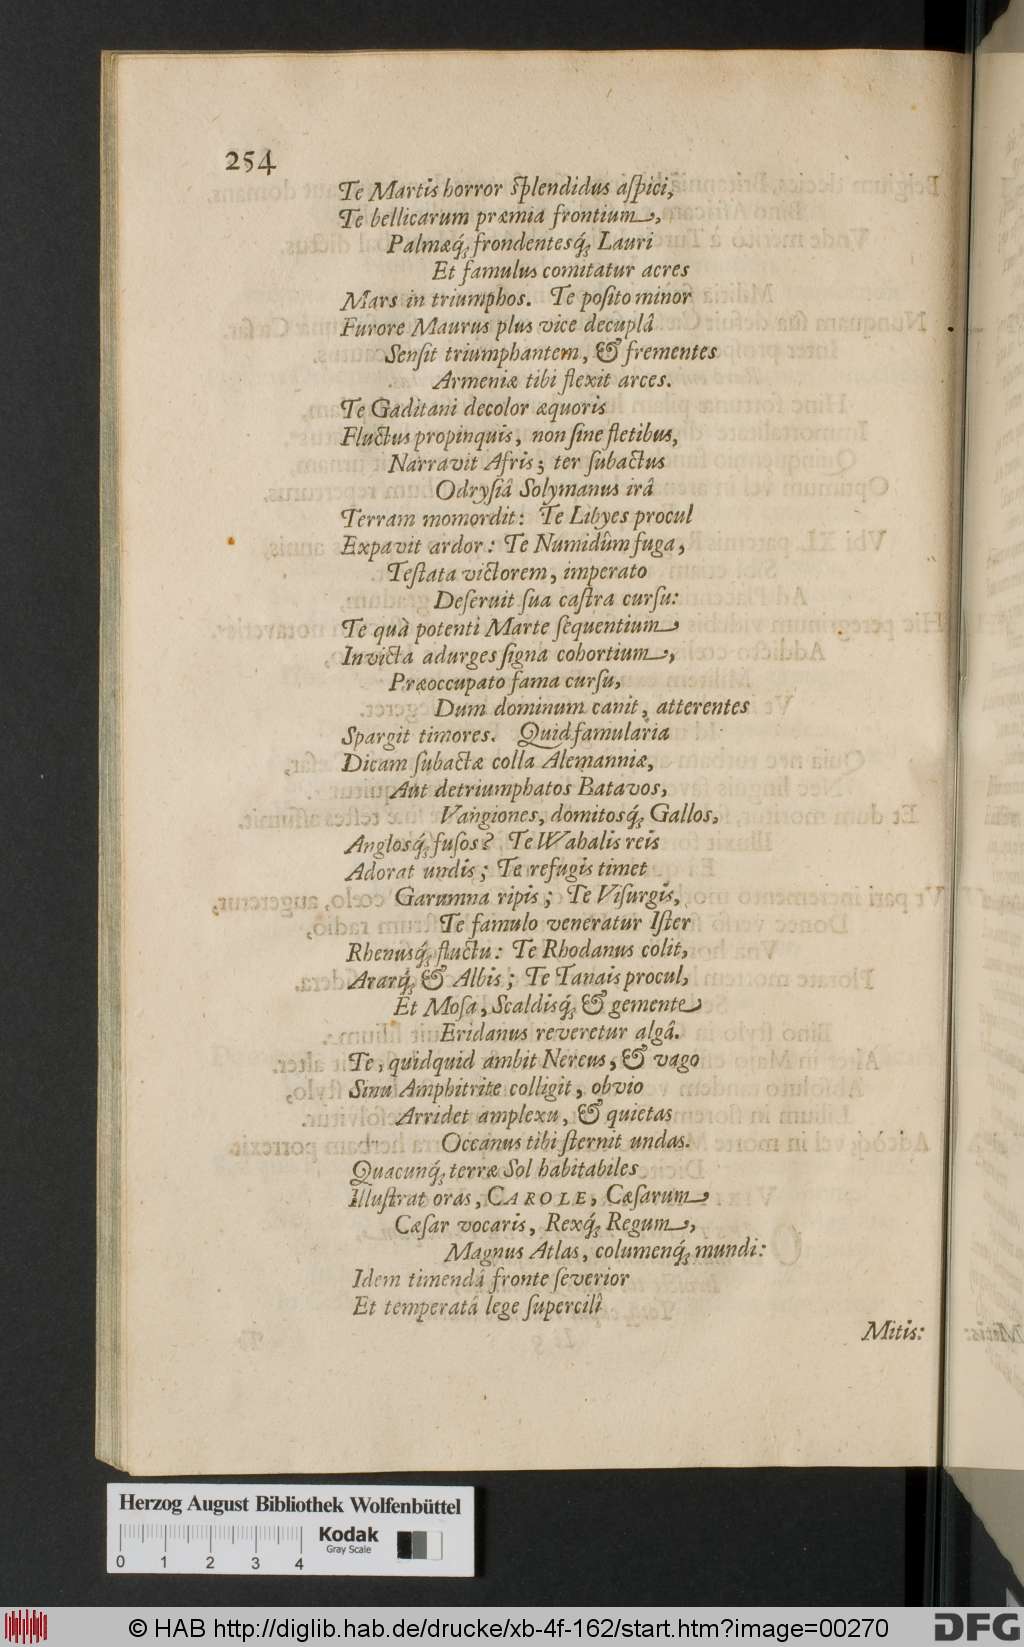 254
Te Martis horror ſplendidus aſpici,
Te bellicarum præmia frontium,
Palmæq́; frondentesq́; Lauri
Et famulus comitatur acres
Mars in triumphos. Te poſito minor
Furore Maurus plus vice decuplâ
Senſit triumphantem, & frementes
Armeniæ tibi flexit arces.
Te Gaditani decolor æquoris
Fluctus propinquis, non ſine fletibus,
Narravit Afris; ter ſubactus
Odryſiâ Solymanus irâ
Terram momordit: Te Libyes procul
Expavit ardor: Te Numidûm fuga,
Teſtata victorem, imperato
Deſeruit ſua caſtra curſu:
Te quà potenti Marte ſequentium
Invicta adurges ſigna cohortium,
Præoccupato fama curſu,
Dum dominum canit, atterentes
Spargit timores. Quid famularia
Dicam ſubactæ colla Alemanniæ,
Aut detriumphatos Batavos,
Vangiones, domitosq́; Gallos,
Anglosq́; fuſos? Te Wahalis reis
Adorat undis; Te refugis timet
Garumna ripis; Te Viſurgis,
Te famulo veneratur Iſter
Rhenusq́; fluctu: Te Rhodanus colit,
Ararq́; & Albis; Te Tanais procul,
Et Moſa, Scaldisq́; & gemente
Eridanus reveretur algâ.
Te, quidquid ambit Nereus, & vago
Sinu Amphitrite colligit, obvio
Arridet amplexu, & quietas
Oceanus tibi ſternit undas.
Quacunq́; terræ Sol habitabiles
Illuſtrat oras, CAROLE, Cæſarum
Cæſar vocaris, Rexq́; Regum,
Magnus Atlas, columenq́; mundi:
Idem timendâ fronte ſeverior
Et temperatâ lege ſupercilî
Mitis:
Herzog August Bibliothek Wolfenbüttel
Kodak
Gray Scale
0 1 2 3 4
© HAB http://diglib.hab.de/drucke/xb-4f-162/start.htm?image=00270
DFG